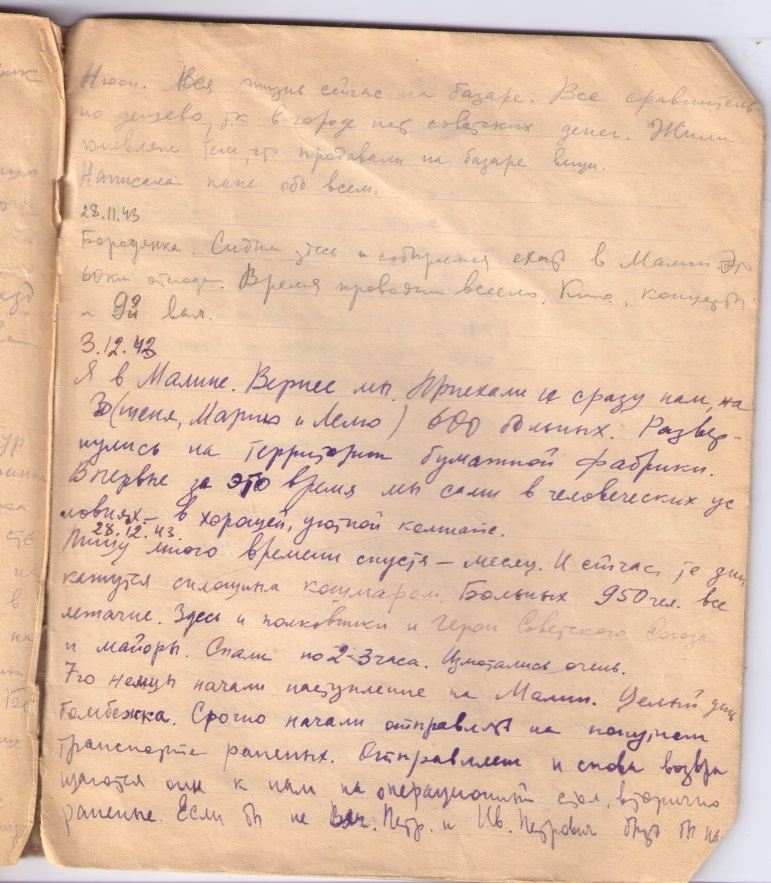 Нюси. Вся жизнь сейчас на базаре. Все сравнитель
но дешево, т.к в городе нет советских денег. Жили
тем, что продавали на базаре вещи.
Написала папе обо всем.
28.11.43
Бородянка. Сидим здесь и собираемся ехать в Малин. Это
60 км отсюда. Время проводим весело. Кино, концерты
и
3.12.43
Я в Малине. Вернее мы. Приехали и сразу нам, на
3х (меня, Марию и Лелю) 600 больных. Развер-
нулись на территории бумажной фабрики.
Впервые за это время мы сами в человеческих ус
ловиях – в хорошей, уютной комнате.
28.12.43.
Пишу много времени спустя – месяц. И сейчас те дни
кажутся сплошным кошмаром. Больных 950 чел. все
лежачие. Здесь и полковники и Герои Советского Союза
и майоры. Спали по 2-3 часа. Измотались очень.
7го немцы начали наступление на Малин. Целый день
бомбежка. Срочно начали отправлять на попутном
транспорте раненых. Отправляем и снова возвра
щаются они к нам на операционный стол, вторично
раненые. Если бы не Петр. и Ив. Петрович бы на